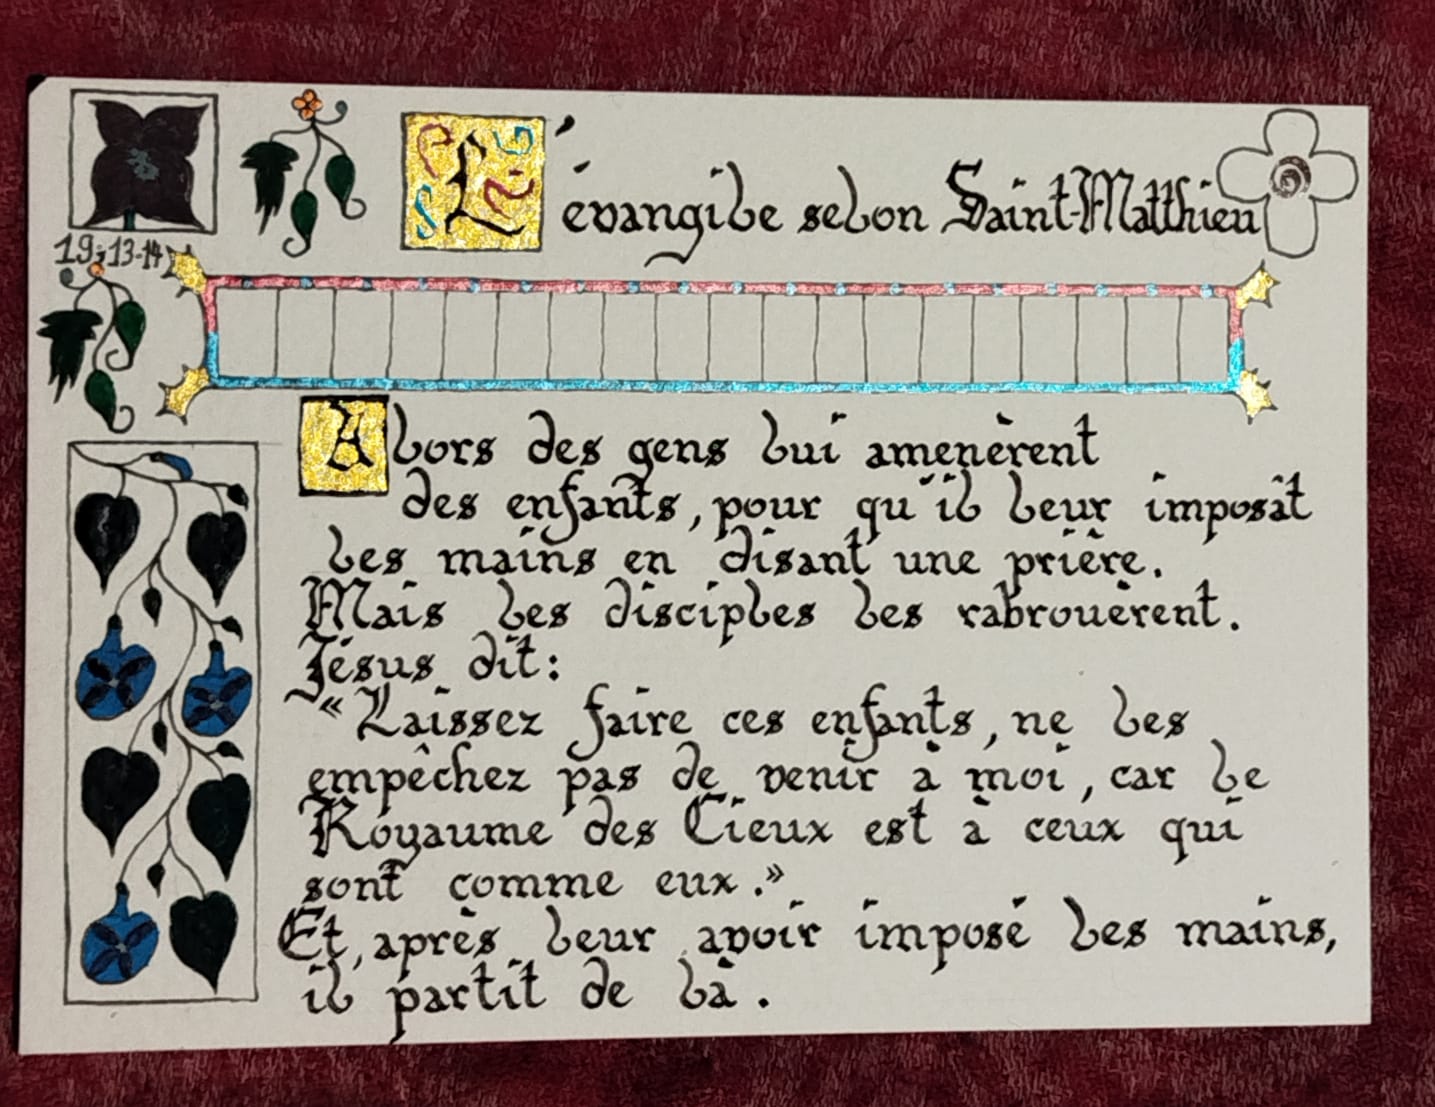 L'évangile selon Saint-Matthieu
19,13-14
Alors des gens lui amenèrent
des enfants, pour qu'il leur imposât
les mains en disant une prière.
Mais les disciples les rabrouèrent.
Jésus dit:
«Laissez faire ces enfants, ne les
empêchez pas de venir à moi, car le
Royaume des Cieux est à ceux qui
sont comme eux.»
Et, après leur avoir imposé les mains,
il partit de là.